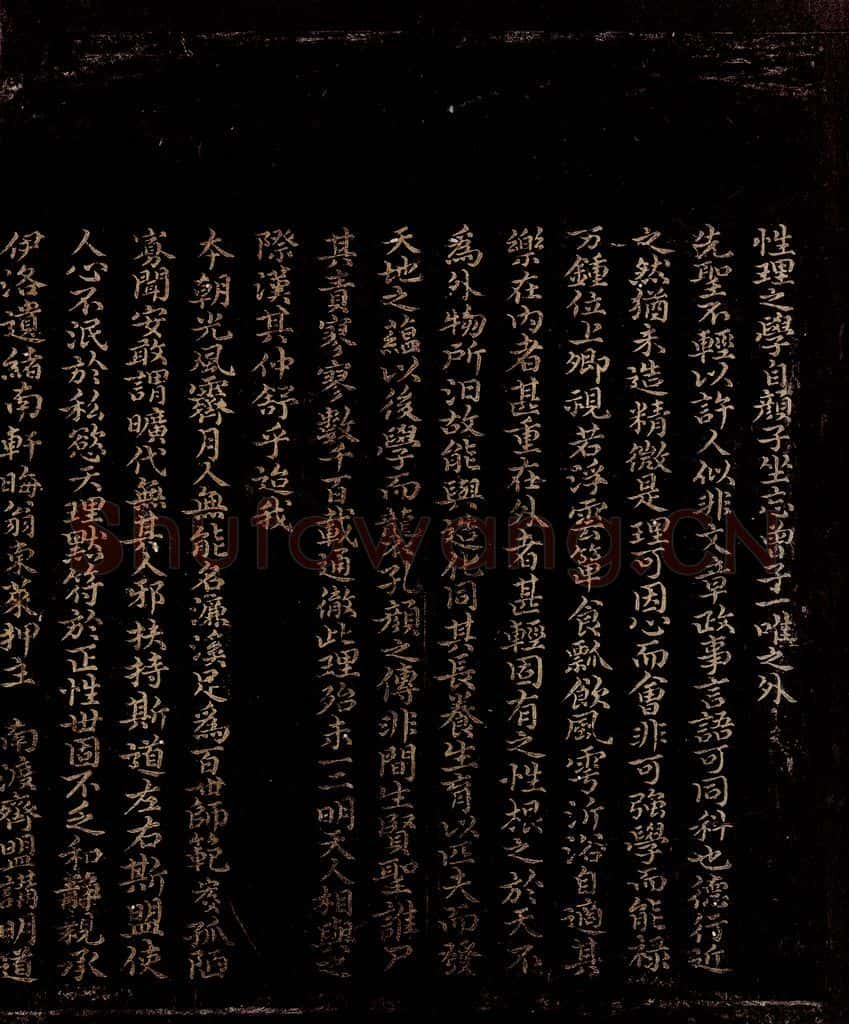 性理之學自顏子坐忘曽子一唯之外
先聖不輕以許人似非文章政事言語可同科也德行近
之然猶未造精微是理可因心而會非可強學而能祿
万鍾位上卿視若浮雲簞食瓢飲風雩沂浴自適其
樂在內者甚重在外者甚輕固有之性根之於天不
為外物所汩故能與造化同其長養生育以匹夫而發
天地之蘊以後學而襲孔顏之傳非間生賢聖誰尸
其責寥寥數千百載通徹此理殆未一二明天人相與之
際漢其仲舒乎迨我
本朝光風霽月人無能名濂溪足為百世師範安孤陋
寡聞安敢謂曠代無其人邪扶持斯道左右斯盟使
人心不泯於私慾天理默符於正性世固不乏和靜親承
伊洛遺緒南軒晦翁東萊抑主 南渡齊盟講明道
Shufawang.CN